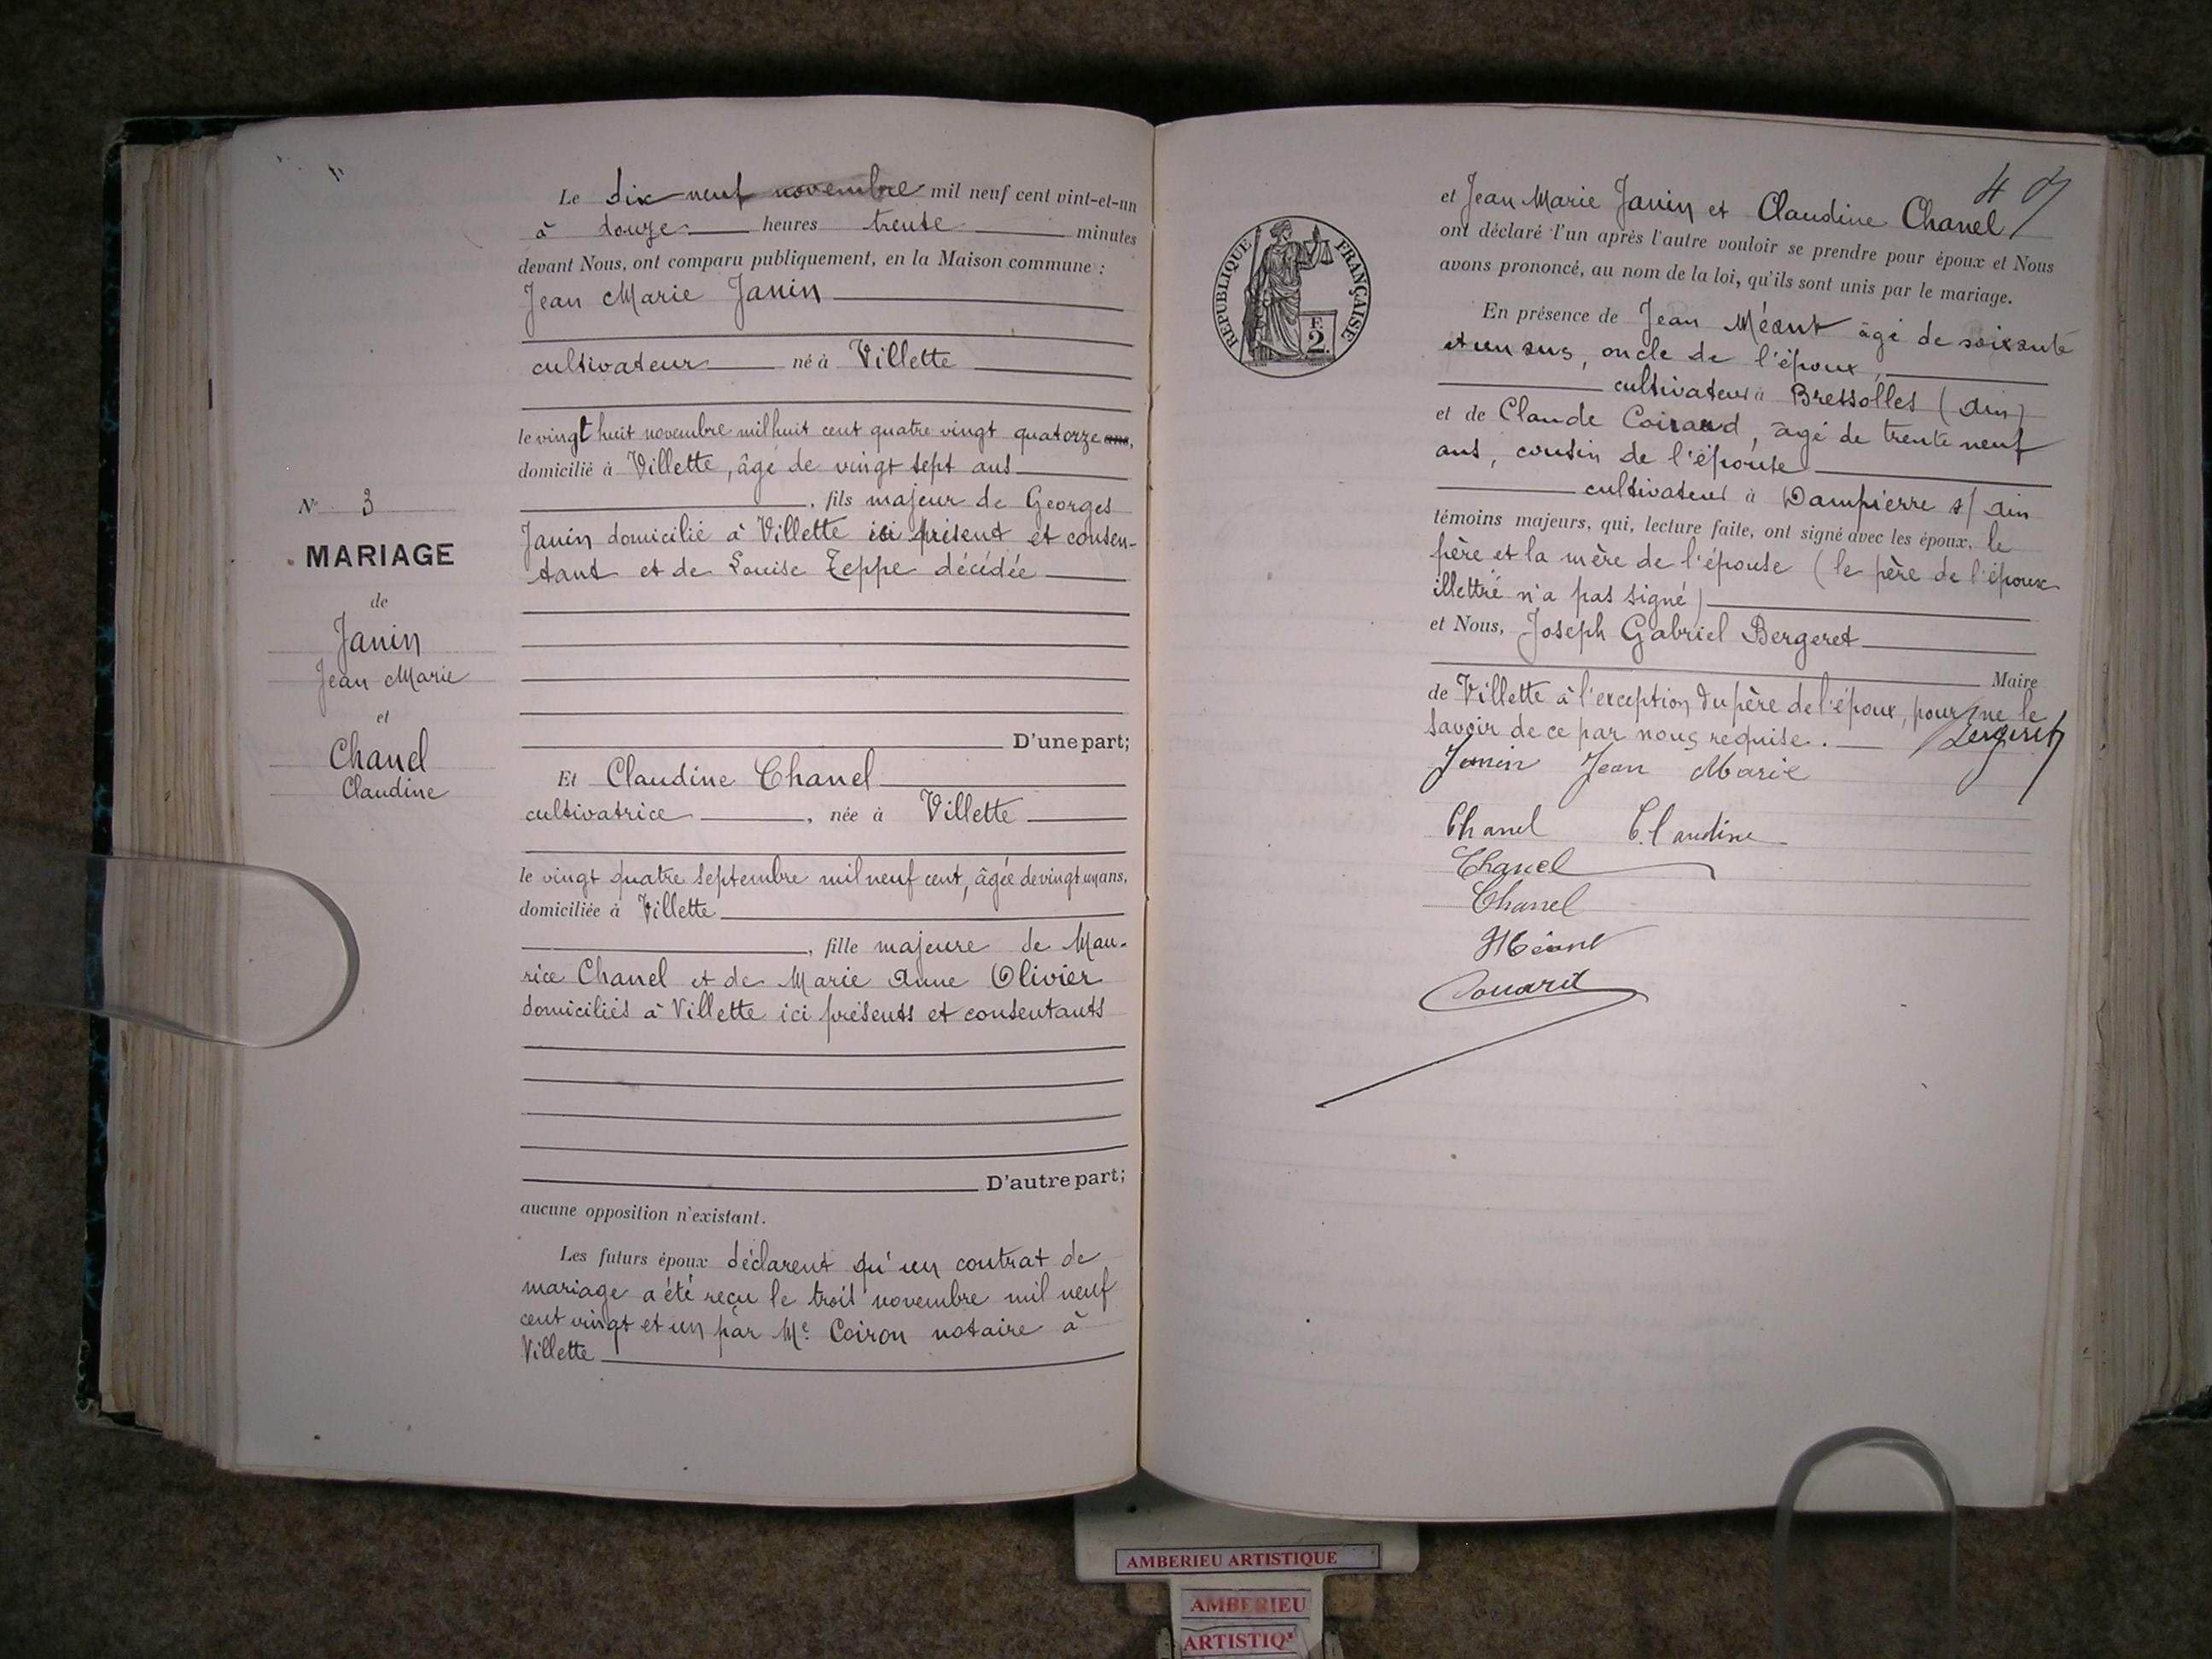 Le dix neuf novembre mil neuf cent vint-et-un
à douze heures trente minutes
devant Nous, ont comparu publiquement, en la Maison commune :
Jean Marie Janin
cultivateur né à Villette
le vingt huit novembre mil huit cent quatre vingt quatorze ans,
domicilié à Villette, âgé de vingt sept ans
, fils majeur de Georges
Janin domicilié à Villette ici présent et consen-
tant et de Louise Teppe décédée
D'une part;
Et Claudine Chanel
cultivatrice, née à Villette
le vingt quatre septembre mil neuf cent, âgée de vingt un ans,
domiciliée à Villette
, fille majeure de Mau-
rice Chanel et de Marie Anne Olivier
domiciliés à Villette ici présents et consentants
D'autre part;
aucune opposition n'existant.
Les futurs époux déclarent qu'un contrat de
mariage a été reçu le trois novembre mil neuf
cent vingt et un par Me Coiron notaire à
Villette
No 3
MARIAGE
de
Janin
Jean Marie
et
Chanel
Claudine
REPUBLIQUE FRANÇAISE
F.
2.
et Jean Marie Janin et Claudine Chanel
ont déclaré l'un après l'autre vouloir se prendre pour époux et Nous
avons prononcé, au nom de la loi, qu'ils sont unis par le mariage.
En présence de Jean Méant âgé de soixante
et un ans, oncle de l'époux,
cultivateur à Bressolles (Ain)
et de Claude Coirard, âgé de trente neuf
ans, cousin de l'épouse
cultivateur à Dampierre s/ Ain
témoins majeurs, qui, lecture faite, ont signé avec les époux, le
père et la mère de l'épouse (le père de l'époux
illettré n'a pas signé)
et Nous, Joseph Gabriel Bergeret
Maire
de Villette à l'exception du père de l'époux, pour ne le
savoir de ce par nous requise. Bergeret
Janin Jean Marie
Chanel Claudine
Chanel
Chanel
Méant
AMBERIEU ARTISTIQUE
AMBERIEU
ARTISTIQ